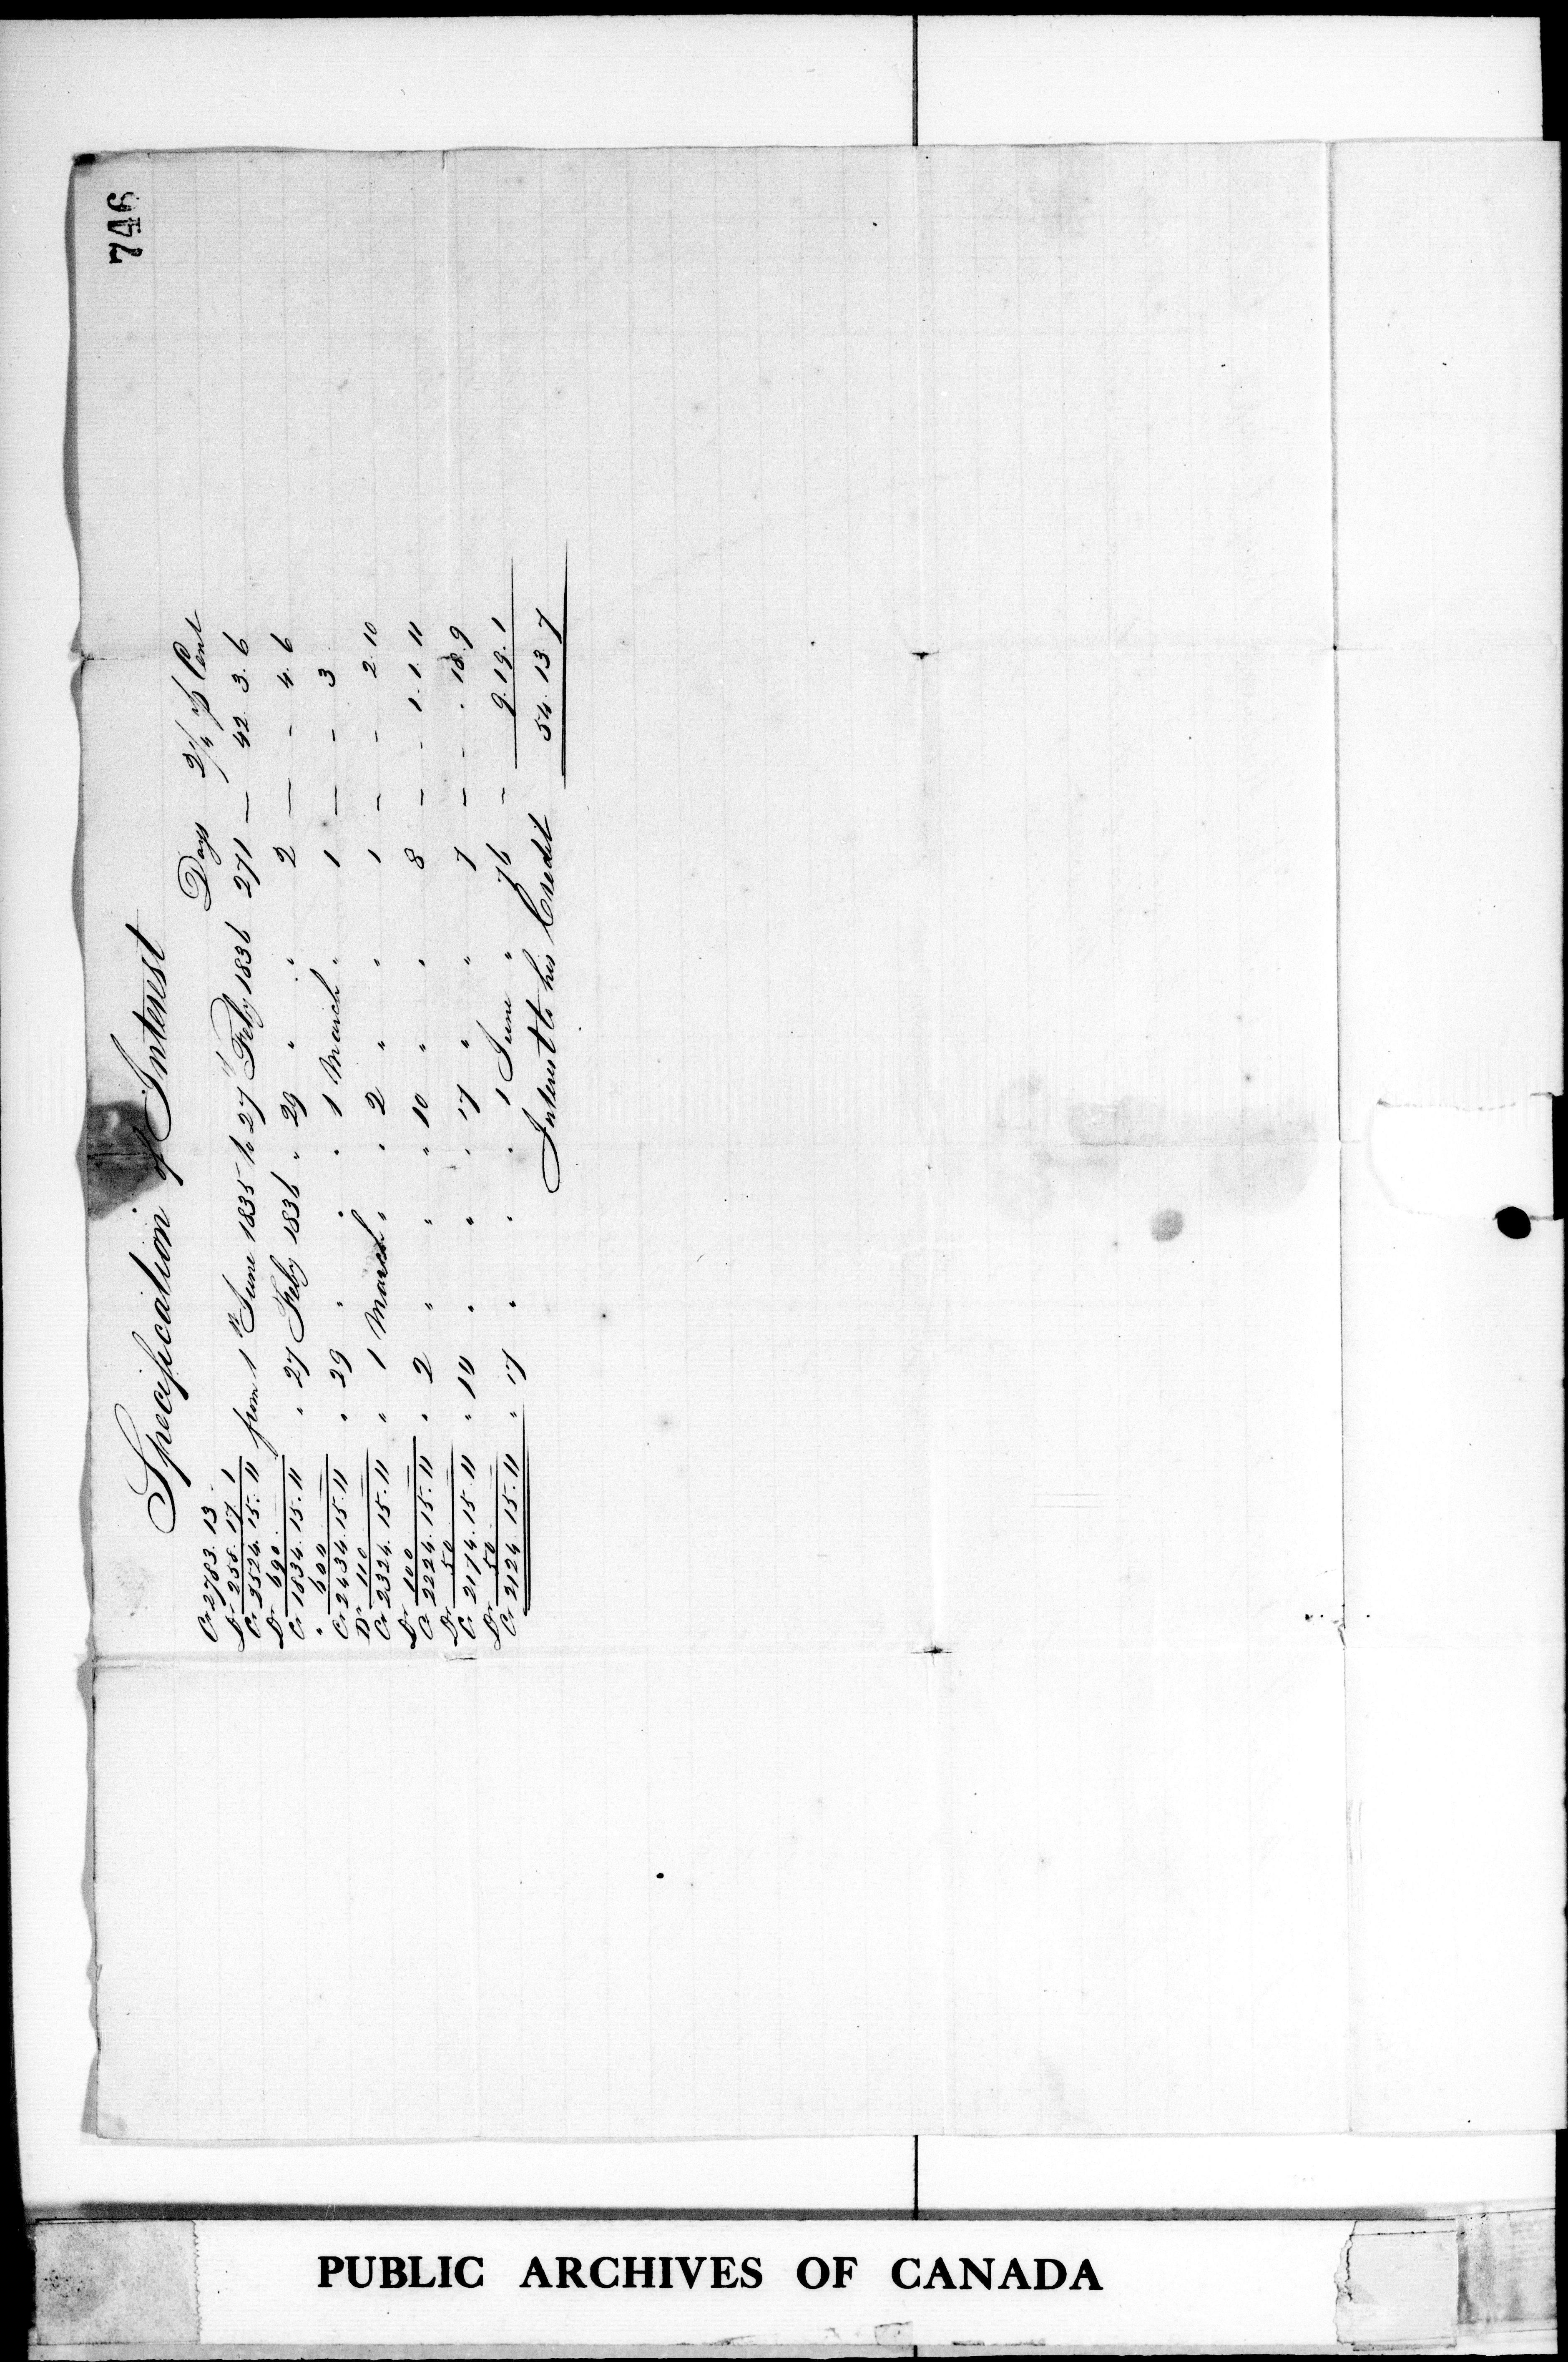 746
Specification of Interest
Days 2 1/4 p Cent
Cr 2783. 13
Dr 258. 17. 1
Cr 2524. 15. 11 from 1st June 1835 to 27th Feby 1836 271 — 42. 3. 6
Dr 690
Cr 1834. 15. 11 " 27 Feby 1836 " 29 " " 2 — - 4. 6
" 600
Cr 2434. 15. 11 " 29 " " " 1 March " 1 — - 3
Dr 110
Cr 2324. 15. 11 " 1 March " " 2 " " 1 - - 2. 10
Dr 100
Cr 2224. 15. 11 " 2 " " " 10 " " 8 - - 1. 1. 11
Dr 50
Cr 2174. 15. 11 " 10 " " " 17 " " 7 - - . 18. 9
Dr 50
Cr 2124. 15. 11 " 17 " " " 1 June " 76 - 9. 19. 1
Interest to his Credit 54. 13. 7
PUBLIC ARCHIVES OF CANADA